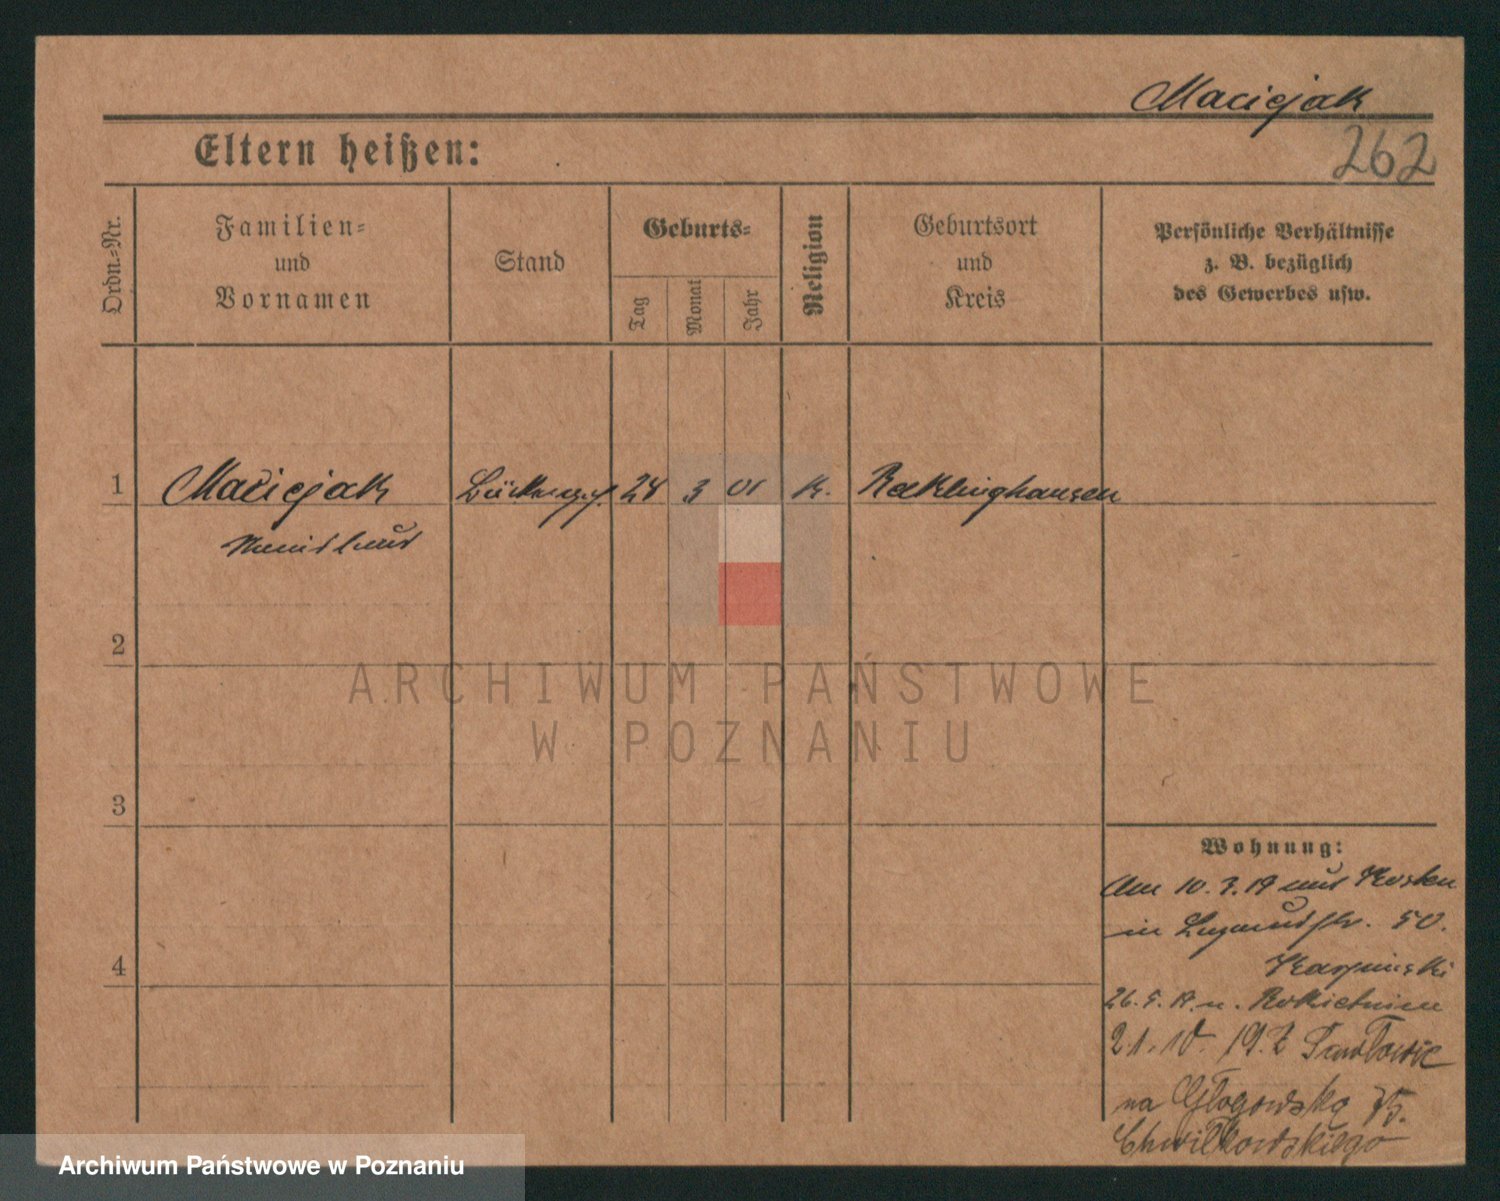 Maciejak
262
Eltern heißen:
Ordn.-Nr.
Familien-
und
Vornamen
Stand
Geburts-
Tag
Monat
Jahr
Religion
Geburtsort
und
Kreis
Persönliche Verhältnisse
z. B. bezüglich
des Gewerbes usw.
1 Maciejak 24 3 01 k. Recklinghausen
2
3
4
Wohnung:
Am 10. 3. 19 aus Kosten
in 50.
26. 5. 19. n. Rokietnica
21. 10. 19. z Pawłowic
na Głogowską 75.
Chwiłkowskiego
ARCHIWUM PAŃSTWOWE
W POZNANIU
Archiwum Państwowe w Poznaniu